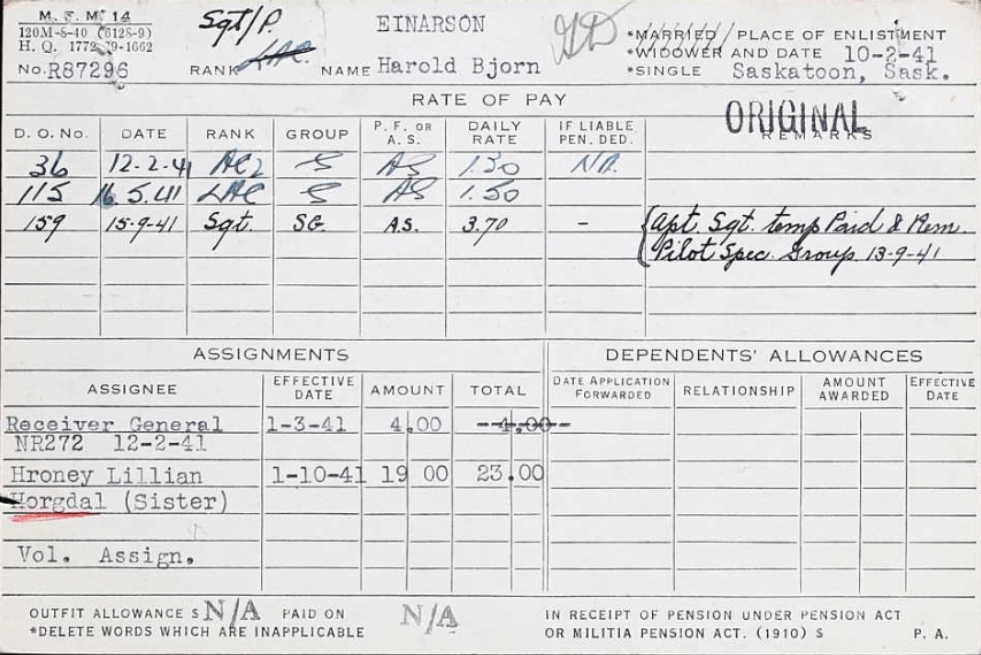 M. F. M. 14
120M-8-40 (6128-9)
H. Q. 1772-39-1662
No. R87296
Sgt/P.
RANK LAC.
EINARSON
NAME Harold Bjorn
*MARRIED PLACE OF ENLISTMENT
*WIDOWER AND DATE 10-2-41
*SINGLE Saskatoon, Sask.
RATE OF PAY
ORIGINAL
D. O. No. DATE RANK GROUP P. F. OR A. S. DAILY RATE IF LIABLE PEN. DED. REMARKS
36 12-2-41 AC2 S AS 1.30 NA.
115 16.5.41 LAC S AS 1.50
159 15-9-41 Sgt. SG. A.S. 3.70 - Apt. Sgt. temp Paid & Rem.
Pilot Spec. Group. 13-9-41
ASSIGNMENTS DEPENDENTS' ALLOWANCES
ASSIGNEE EFFECTIVE DATE AMOUNT TOTAL DATE APPLICATION FORWARDED RELATIONSHIP AMOUNT AWARDED EFFECTIVE DATE
Receiver General 1-3-41 4.00 --4.00--
NR272 12-2-41
Hroney Lillian 1-10-41 19 00 23.00
Horgdal (Sister)
Vol. Assign.
OUTFIT ALLOWANCE $ N/A PAID ON N/A IN RECEIPT OF PENSION UNDER PENSION ACT
*DELETE WORDS WHICH ARE INAPPLICABLE OR MILITIA PENSION ACT. (1910) $ P. A.